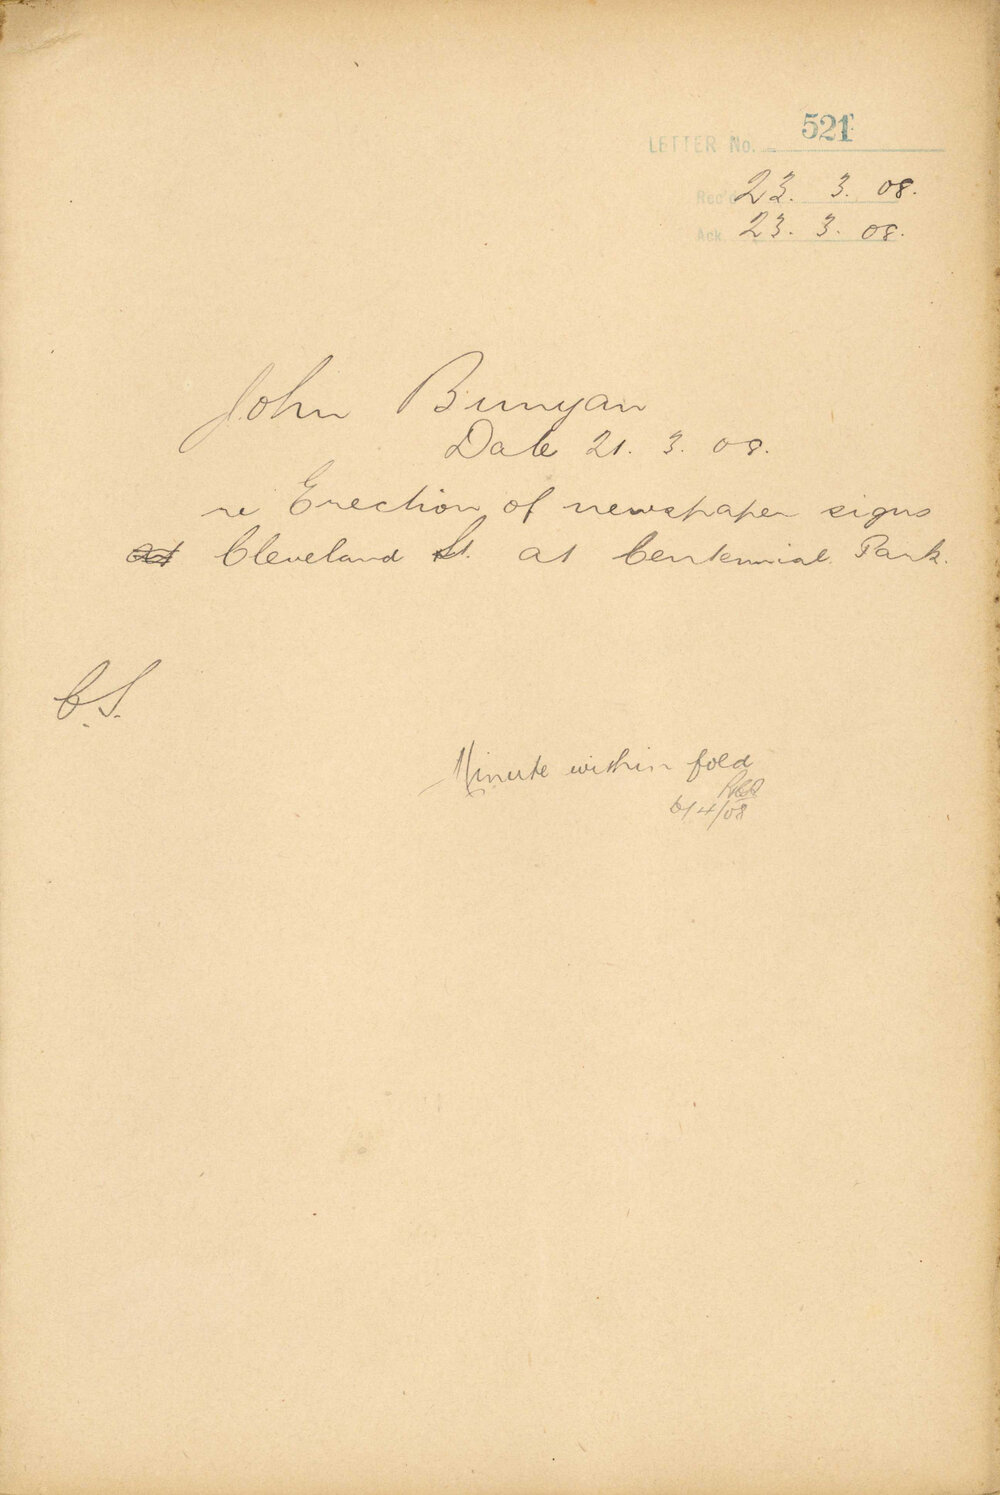 LETTER No. 521
Rec'd 23. 3. 08.
Ack 23. 3. 08.
John Bunyan
Date 21. 3. 08.
re Erection of newspaper signs
at Cleveland St. at Centennial Park.
C.S.
Minute within fold
6/4/08